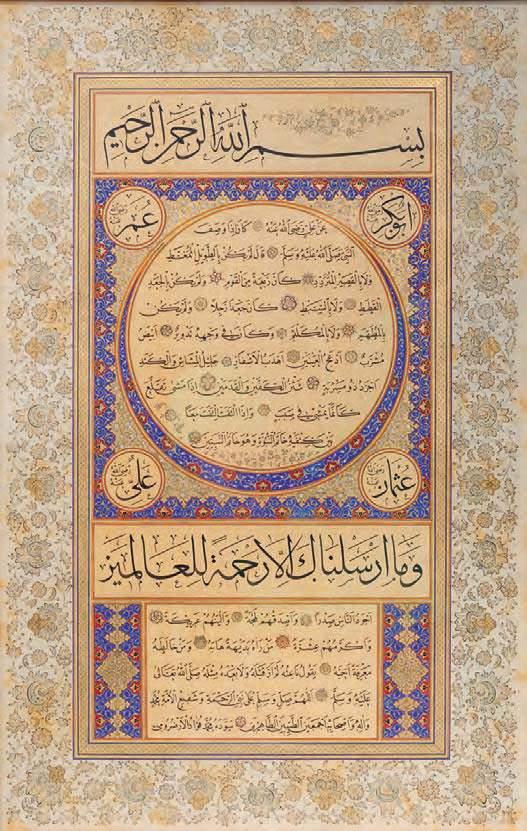 بسم الله الرحمن الرحيم
ابوبكر
عمر
عن علي رضي الله عنه كان اذا وصف
النبي صلى الله عليه وسلم قال لم يكن بالطويل الممغط
ولا بالقصير المتردد وكان ربعة من القوم ولم يكن بالجعد
القطط ولا بالسبط كان جعدا رجلا ولم يكن
بالمطهم ولا بالمكلثم وكان في وجهه تدوير ابيض
مشرب ادعج العينين اهدب الاشفار جليل المشاش والكتد
اجرد ذو مسربة شثن الكفين والقدمين اذا مشى تقلع
كانما يمشي في صبب واذا التفت التفت معا
بين كتفيه خاتم النبوة وهو خاتم النبيين
عثمان
علي
وما ارسلناك الا رحمة للعالمين
اجود الناس صدرا واصدقهم لهجة والينهم عريكة
واكرمهم عشرة من رآه بديهة هابه ومن خالطه
معرفة احبه يقول ناعته لم ار قبله ولا بعده مثله صلى الله تعالى
عليه وسلم اللهم صل وسلم على نبي الرحمة وشفيع الامة محمد
وآله واصحابه اجمعين الطيبين الطاهرين سوده محمد فؤاد